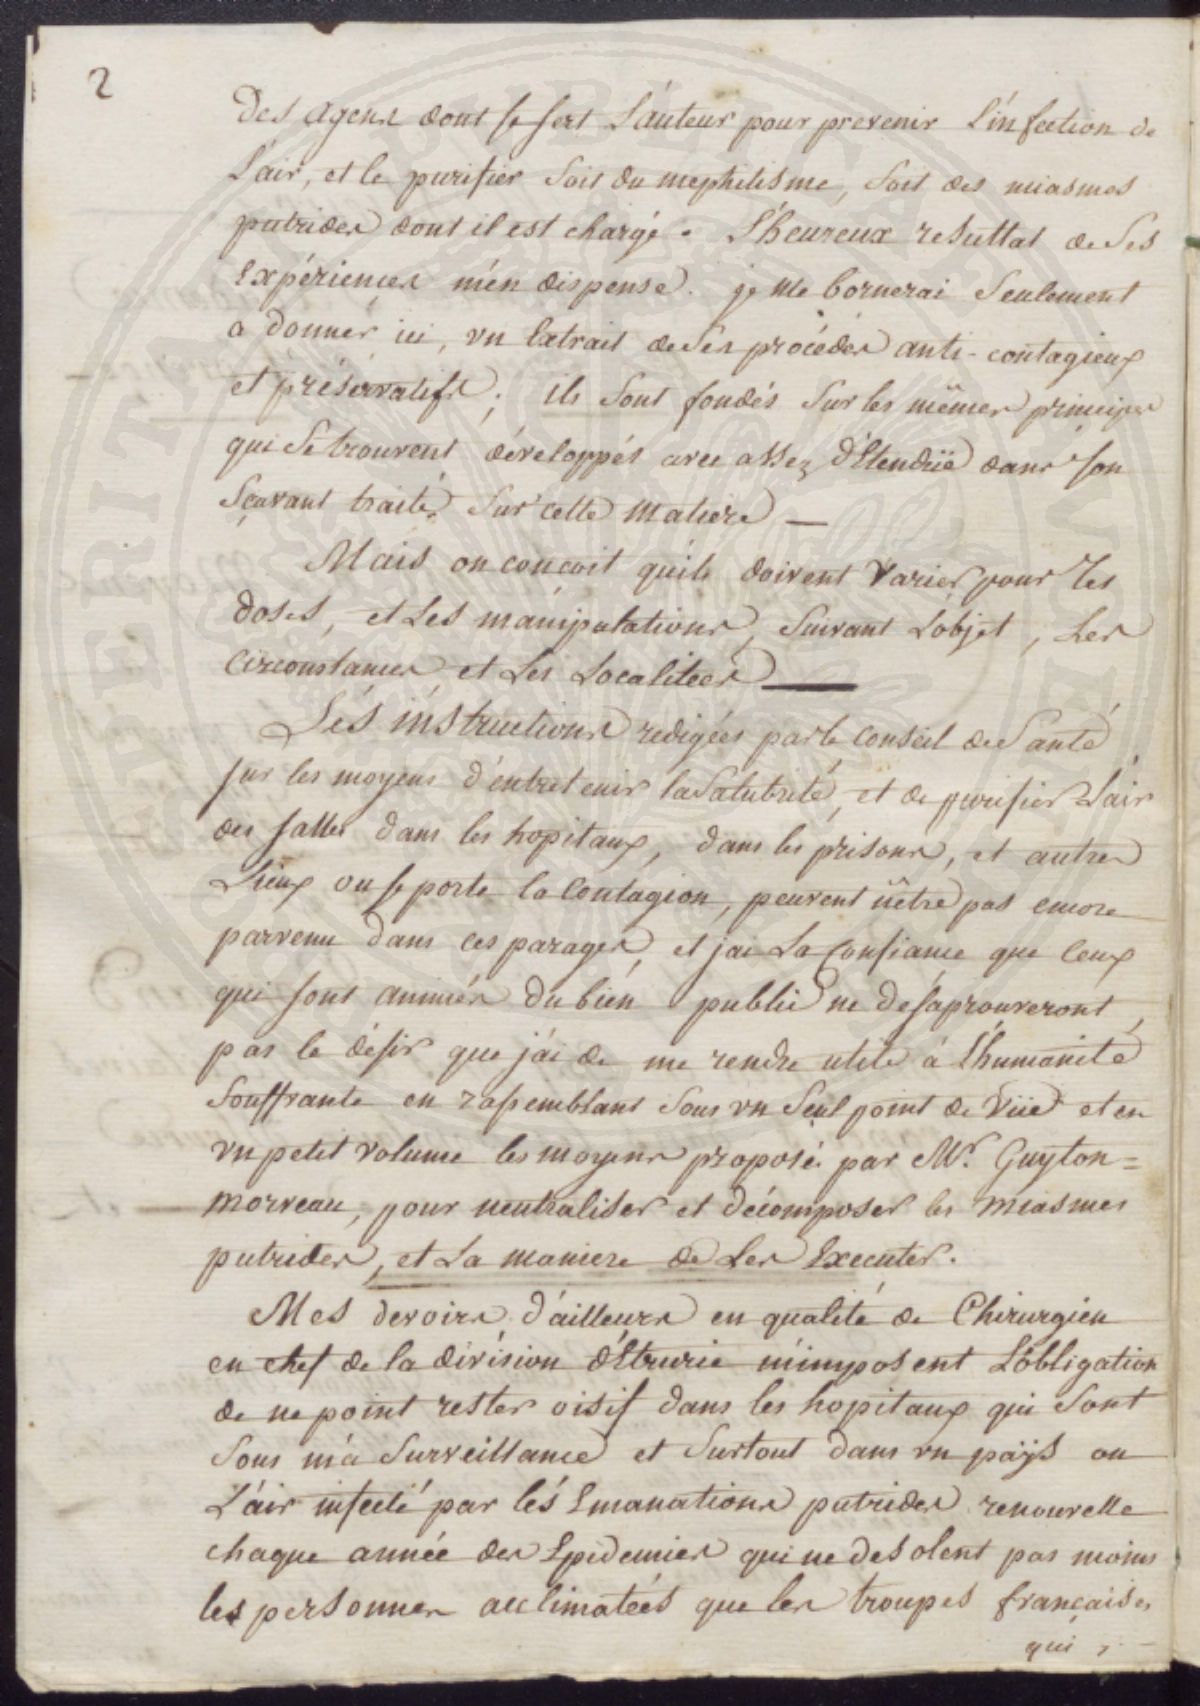 2
Des agens dont se sert L'áuteur pour prevenir L'ínfection de
L'air, et le purifier soit du mephitisme, soit des miasmes
putrides dont il est chargé. L'heureux resultat de Ses
Expériences m'én dispense. je me bornerai Seulement
a donner ici, un Extrait de Ses procédés anti-contagieux
et préservatifs; ils sont fondés sur les mêmes principes
qui se trouvent développés avec assez d'Etendüe dans son
Sçavant traité sur cette matiere —
Mais on concoit qu'ils doivent varier pour les
doses, et Les manipulations, Suivant Lobjet, Les
circonstances et Les Localitées —
Lés instructions redigées par le conseil de Santé
sur les moyens d'entretenir la Salubrité, et de purifier L'air
des salles dans les hopitaux, dans les prisons, et autres
Lieux ou se porte la Contagion, peuvent n'être pas encore
parvenu dans ces parages, et jai La Confiance que Ceux
qui sont animés du bien public ne desaprouveront,
pas le désir que j'ái de me rendre utile à L'humanité
Souffrante en rassemblant sous un Seul point de Vüe et en
un petit volume les moyens proposé par Mr. Guyton=
morveau, pour neutraliser et décomposer les miasmes
putrides, et La maniere de Les Executer.
Mes devoirs d'ailleurs en qualité de Chirurgien
en chef de la division d'Etrurie m'imposent L'obligation
de ne point rester oisif dans les hopitaux qui sont
sous ma Surveillance et Surtout dans un païjs ou
L'áir infecté par lés Emanations putrides renouvelle
chaque année des Epidemies qui ne desolent pas moins
les personnes acclimatées que les troupes françaises
qui